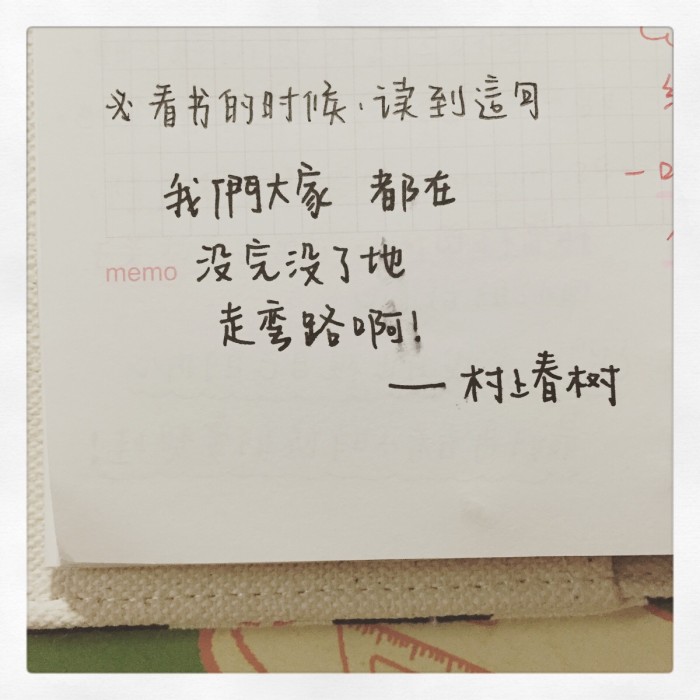 ※ 看书的时候,读到這句
我們大家 都在
memo 没完没了地
走弯路啊!
—— 村上春树